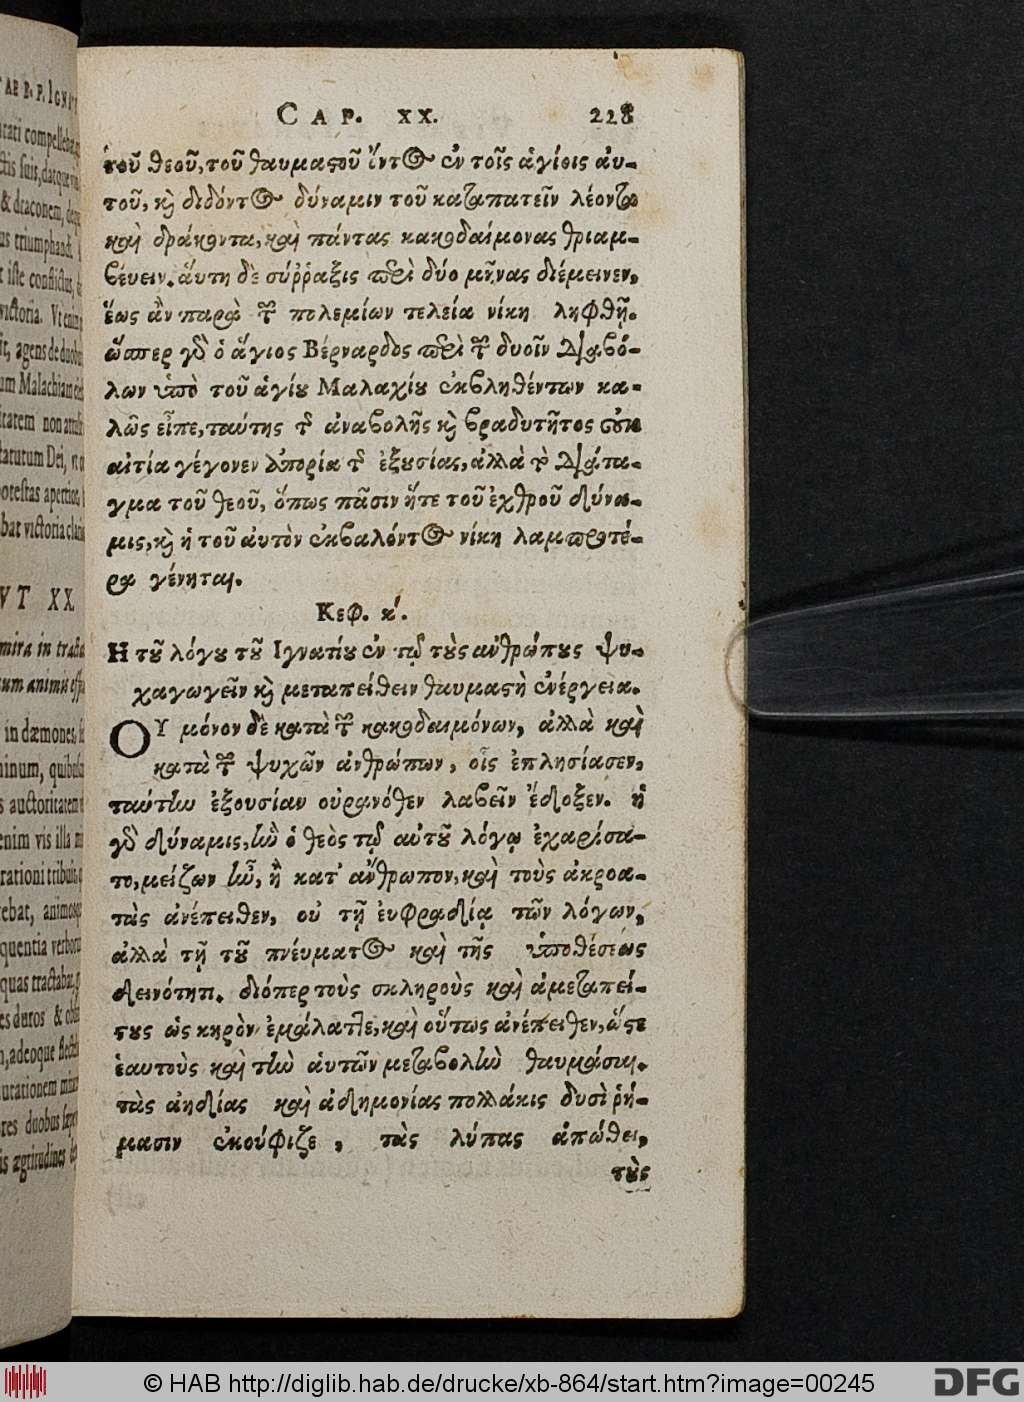 CAP. XX. 228
τοῦ θεοῦ, τοῦ θαυμαστοῦ ὄντος ἐν τοῖς ἁγίοις αὐ-
τοῦ, καὶ διδόντος δύναμιν τοῦ καταπατεῖν λέοντα
καὶ δράκοντα, καὶ πάντας κακοδαίμονας θριαμ-
βέυειν. ἅυτη δὲ σύῤῥαξις περὶ δύο μῆνας διέμεινεν,
ἕως ἂν παρὰ τῶν πολεμίων τελεία νίκη ληφθῇ.
ὥσπερ γὰρ ὁ ἅγιος Βέρναρδος περὶ τῶν δυοῖν διαβό-
λων ὑπὸ τοῦ ἁγίου Μαλαχίου ἐκβληθέντων κα-
λῶς εἶπε, ταύτης τῆς ἀναβολῆς καὶ βραδυτῆτος οὐκ
αἰτία γέγονεν ἀπορία τῆς ἐξουσίας, ἀλλὰ τὸ διάτα-
γμα τοῦ θεοῦ, ὅπως πᾶσιν ἥτε τοῦ ἐχθροῦ δύνα-
μις, καὶ ἡ τοῦ αὐτὸν ἐκβαλόντος νίκη λαμπροτέ-
ρα γένηται.
Κεφ. κ΄.
Η τοῦ λόγου τοῦ Ιγνατίου ἐν τῷ τοὺς ἀνθρώπους ψυ-
χαγωγεῖν καὶ μεταπείθειν θαυμαστὴ ἐνέργεια.
ΟΥ μόνον δὲ κατὰ τῶν κακοδαιμόνων, ἀλλὰ καὶ
κατὰ τῶν ψυχῶν ἀνθρώπων, οἷς ἐπλησίασεν,
ταύτην ἐξουσίαν οὐρανόθεν λαβεῖν ἔδοξεν. ἡ
γὰρ δύναμις, ἣν ὁ θεὸς τῷ αὐτοῦ λόγῳ ἐχαρίσα-
το, μείζων ἦν, ἢ κατ' ἄνθρωπον, καὶ τοὺς ἀκροα-
τὰς ἀνέπειθεν, οὐ τῇ ἐυφραδίᾳ τῶν λόγων,
ἀλλὰ τῇ τοῦ πνέυματος καὶ τῆς ὑποθέσεως
δεινότητι. διόπερ τοὺς σκληροὺς καὶ ἀμεταπεί-
στους ὡς κηρὸν ἐμάλαττε, καὶ οὕτως ἀνέπειθεν, ὥστε
ἑαυτοὺς καὶ τὴν ἁυτῶν μεταβολὴν θαυμάσαι.
τὰς ἀηδίας καὶ ἀδημονίας πολλάκις δυσὶ ῥή-
μασιν ἐκούφιζε, τὰς λύπας ἀπώθει,
τοὺς
© HAB http://diglib.hab.de/drucke/xb-864/start.htm?image=00245
DFG